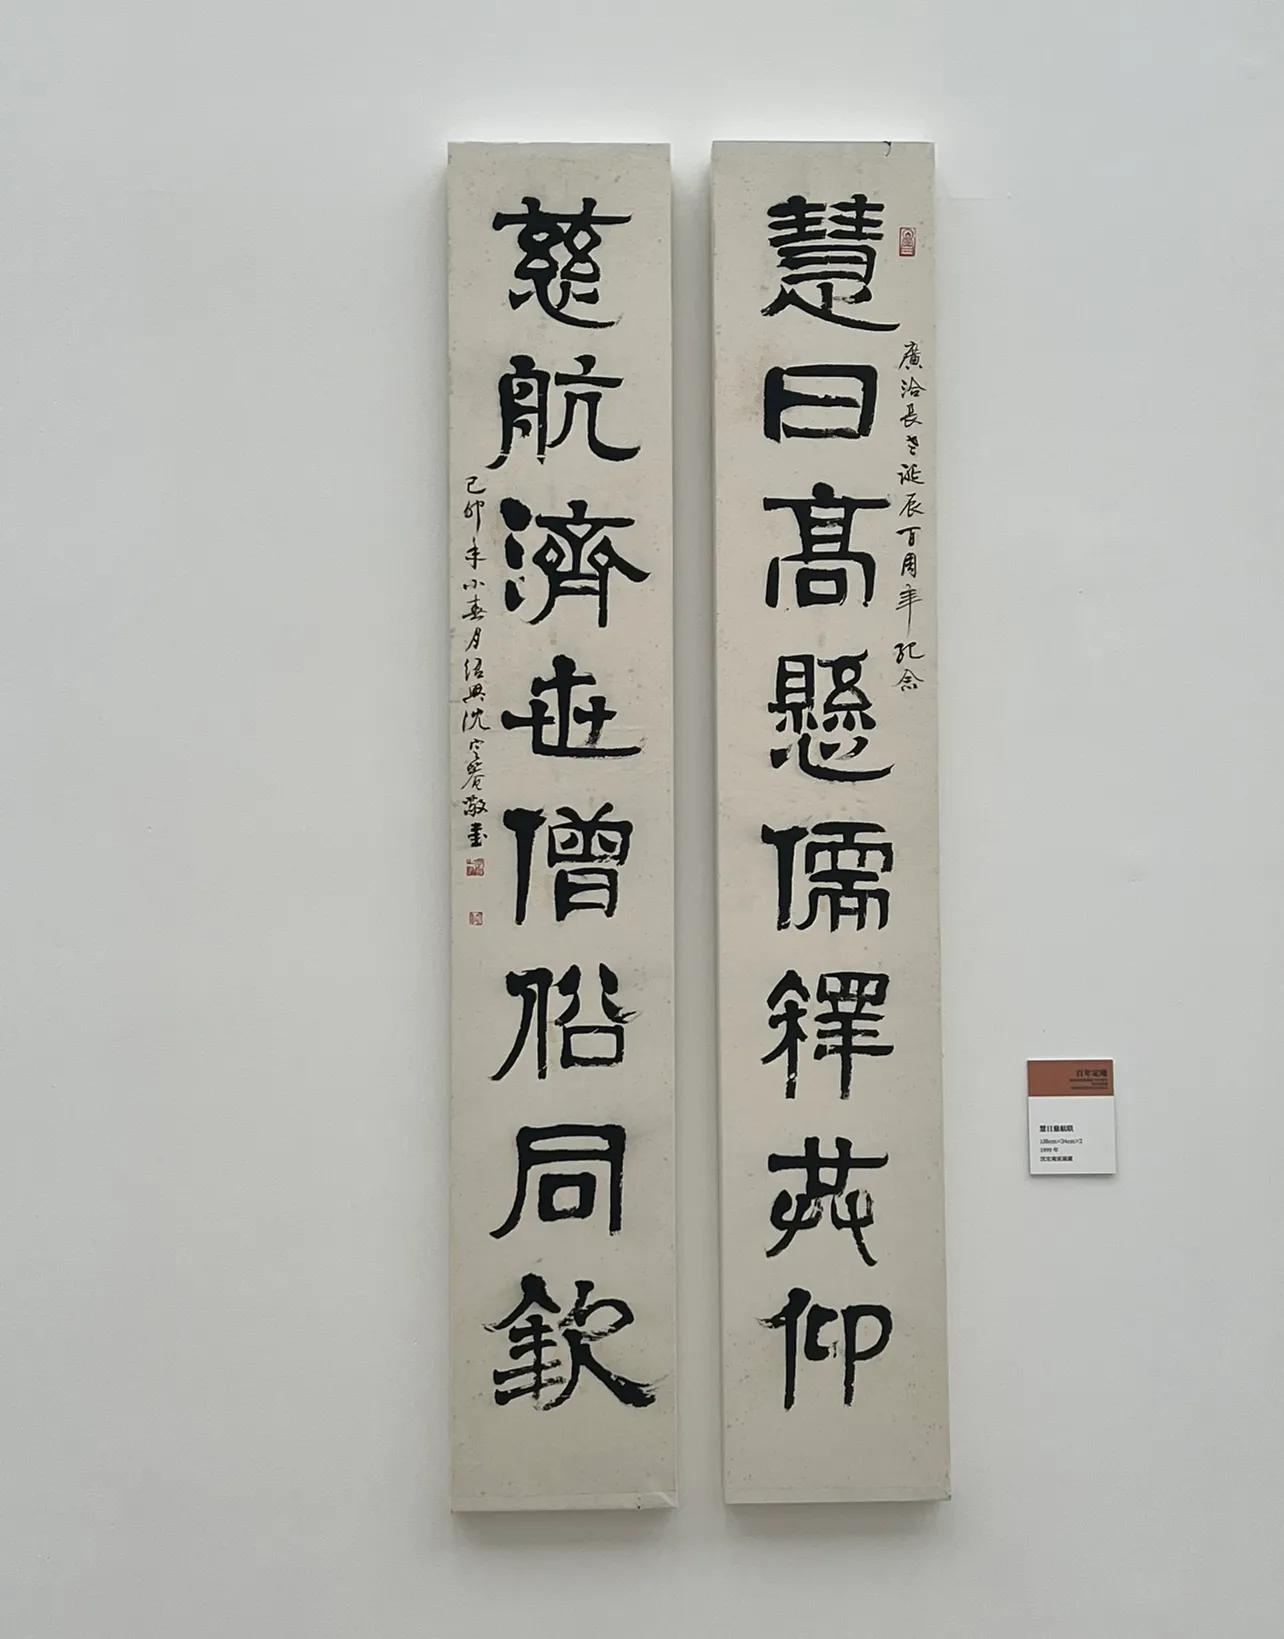 慧日高懸儒釋共仰
廣洽長老誕辰百周年紀念
慈航濟世僧俗同欽
己卯年小春月紹興沈定菴敬書
百年定庵
慧日慈航联
138cm×24cm×2
1999 年
沈定庵家属藏